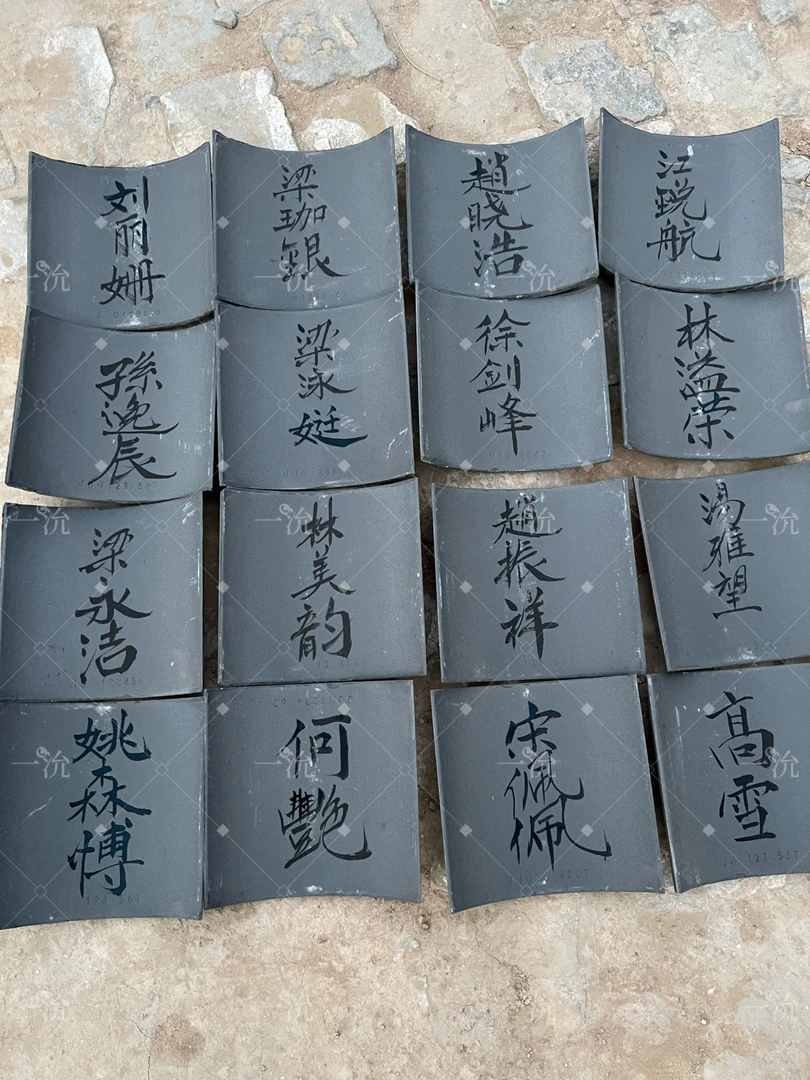 刘丽姗
梁珈銀
趙晓浩
江锐航
孫逸辰
梁泳娗
徐剑峰
林溢荣
梁永洁
林美韵
趙振祥
湯雅望
姚森博
何艷
宋佩佩
高雪
一沇